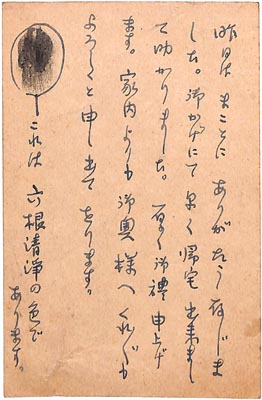 昨日は まことに ありがたう存じま
した。御かげにて 早く帰宅出来まし
て助かりました。厚く御禮申上げ
ます。家内よりも 御奥様へくれぐれも
よろしくと申し出て をります。
これは 六根清浄の色で
あります。